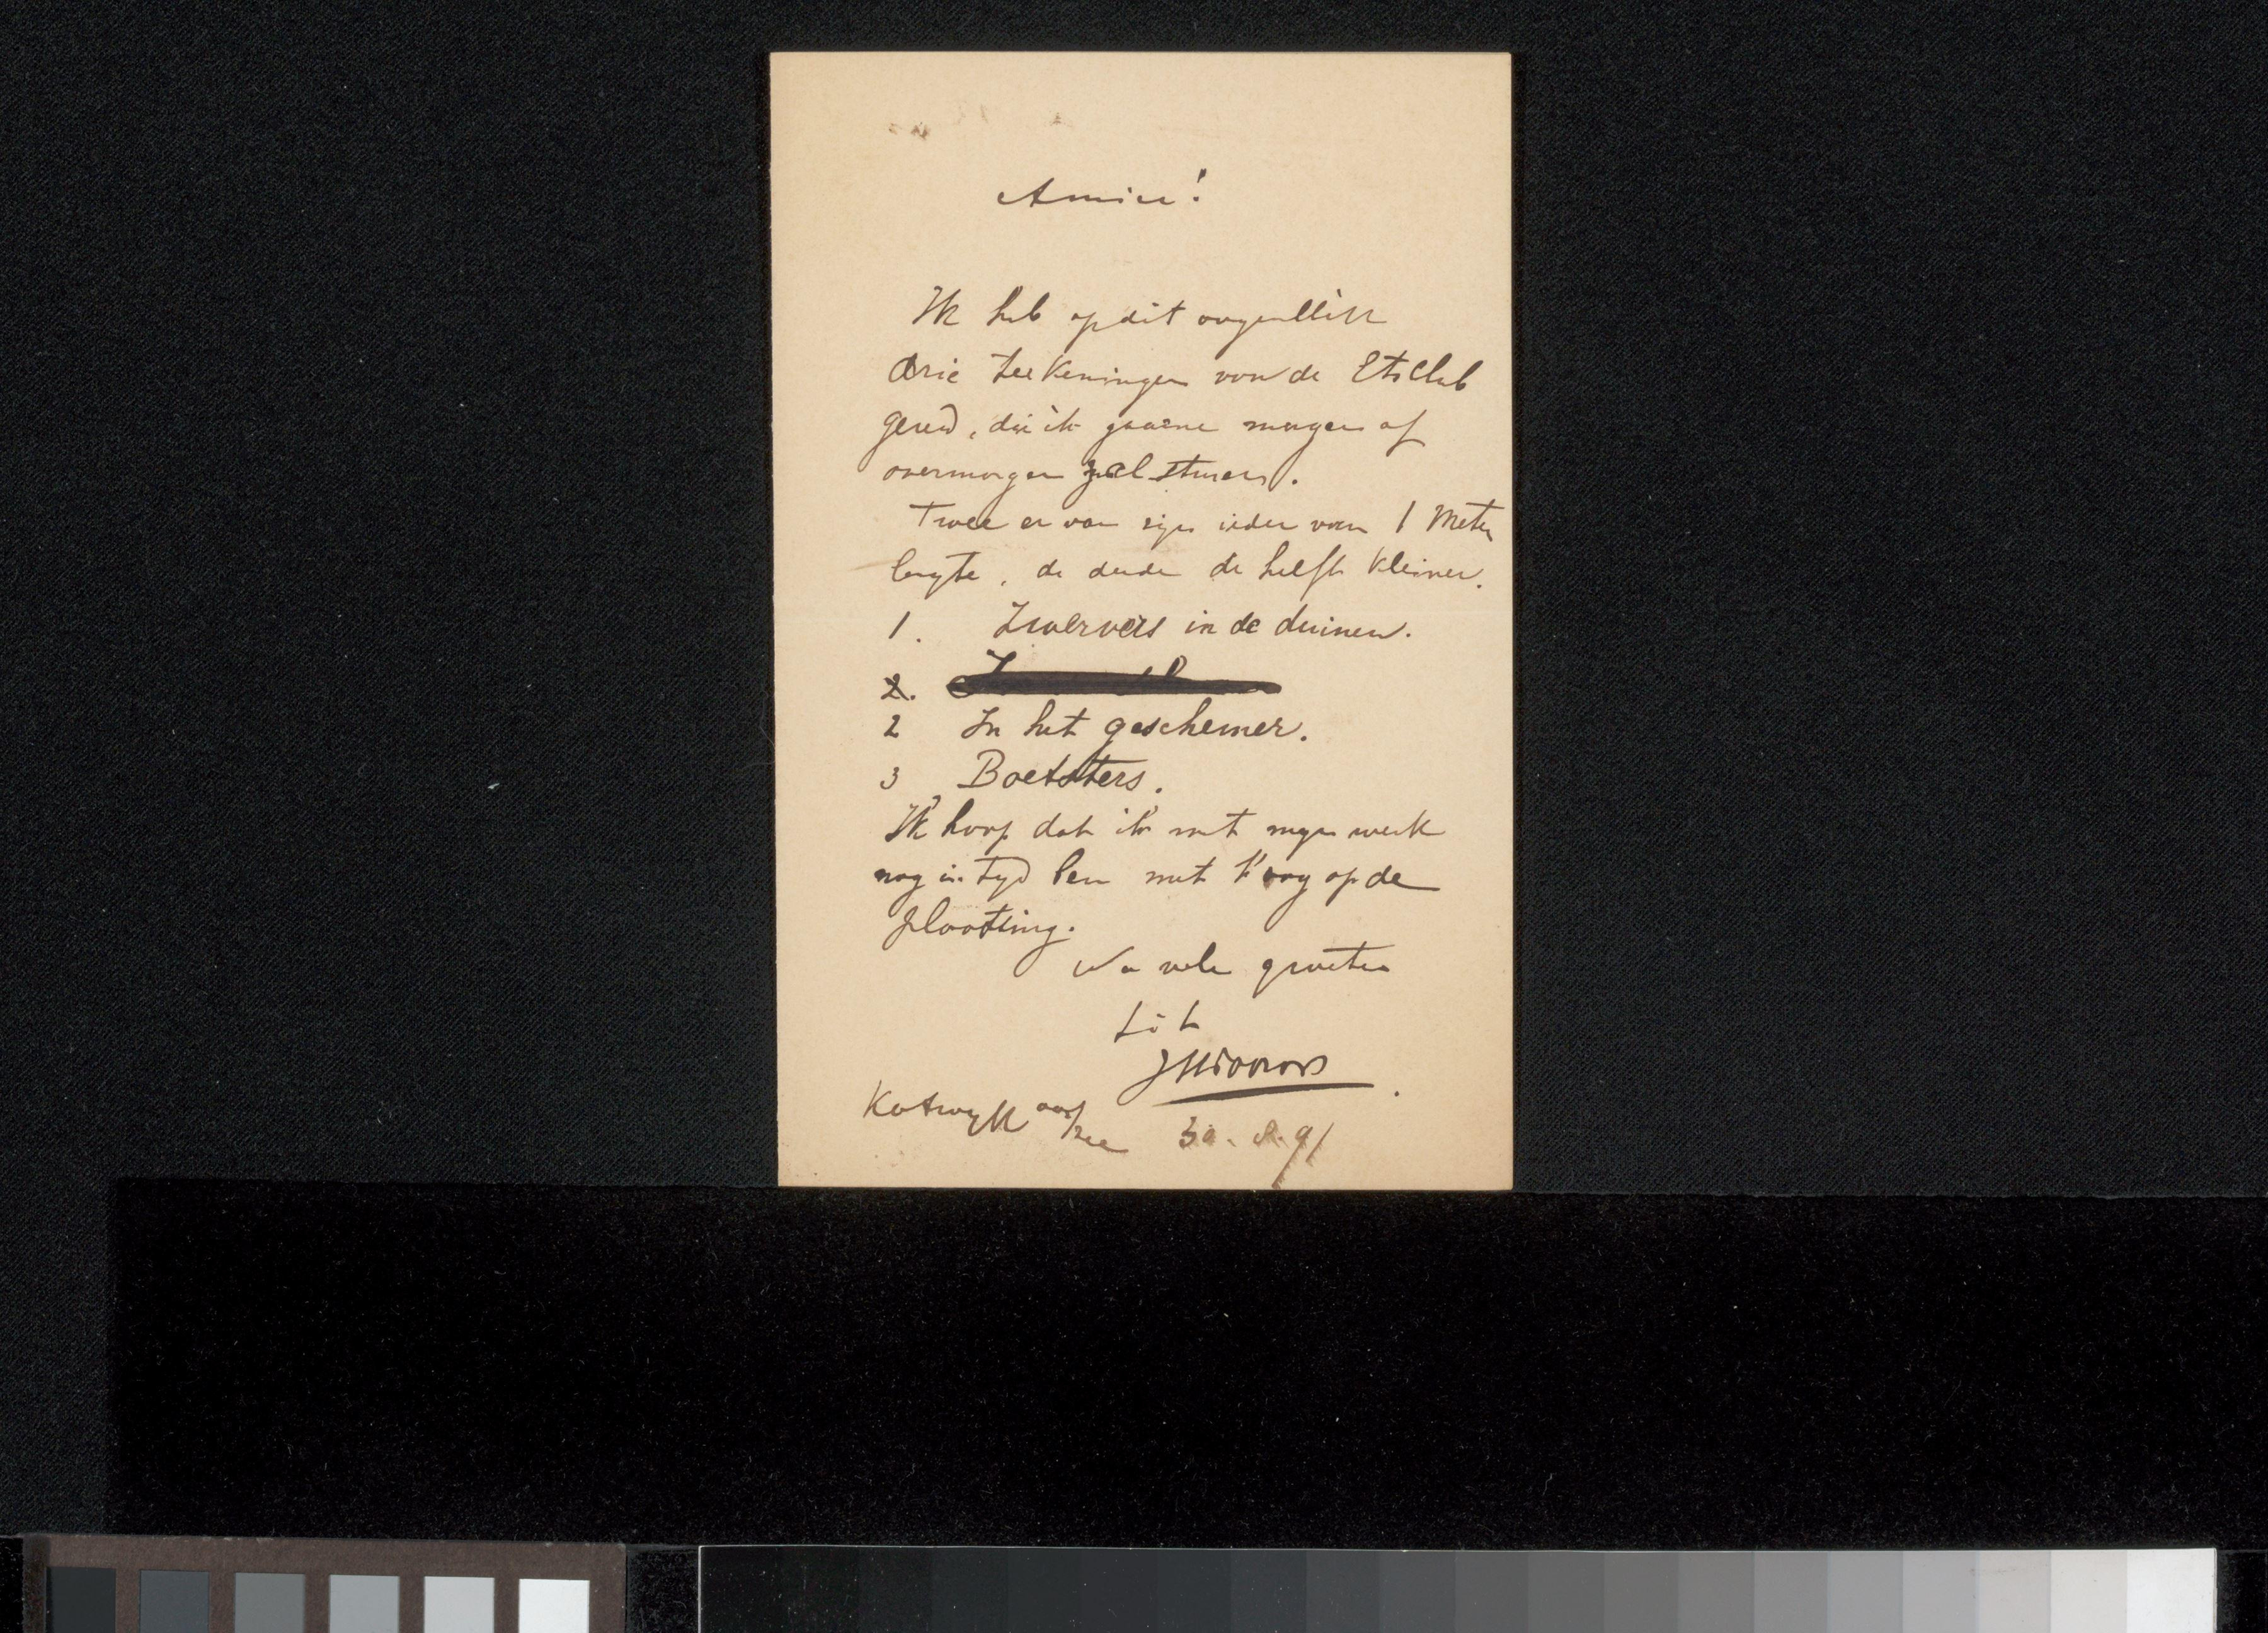 Amice!
Ik heb op dit oogenblik
drie teekeningen voor de Etsclub
gereed, die ik gaarne morgen of
overmorgen zal sturen.
Twee er van zijn ieder van 1 Meter
lengte, de derde de helft kleiner.
1. Zwervers in de duinen.
2.
2 In het geschemer.
3 Boetsters.
Ik hoop dat ik met mijn werk
nog in tyd ben met 't oog op de
plaatsing.
Na vele groeten
t. à t.
Katwyk aan/zee 30. 8. 91